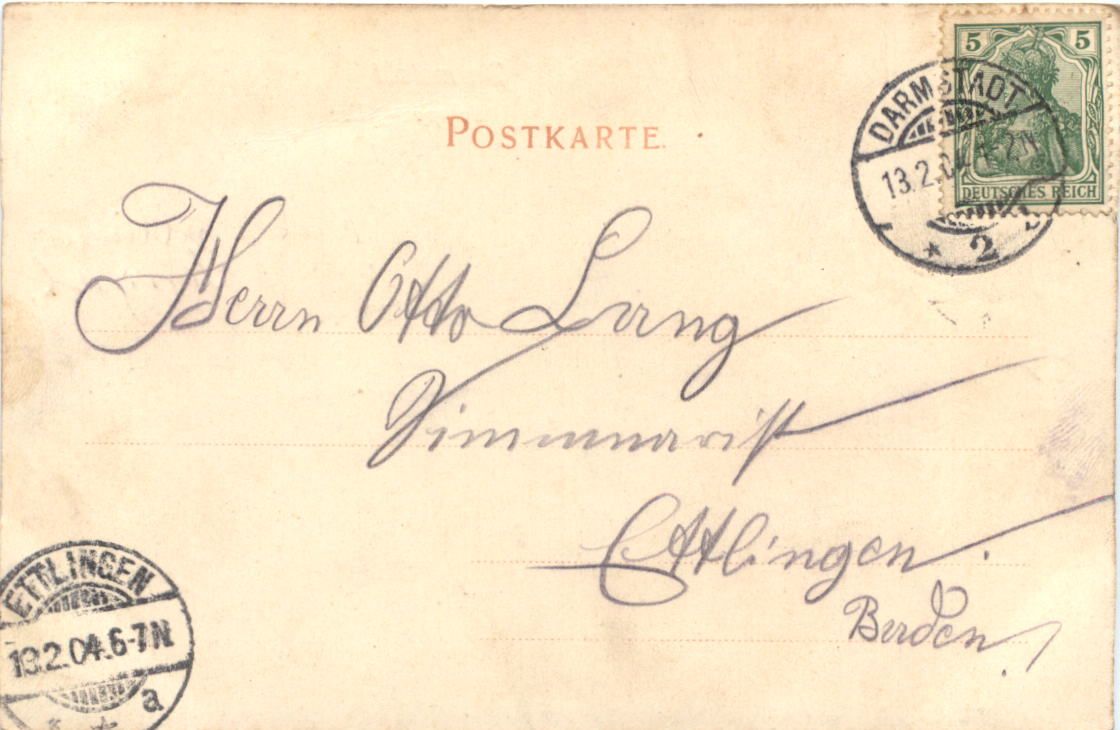 5 5
DEUTSCHES REICH
DARMSTADT
13.2.04. 1-2N
* 2
POSTKARTE.
Herrn Otto Lang
Simmnarist
Ettlingen.
Baden
ETTLINGEN
13.2.04.6-7N
* a